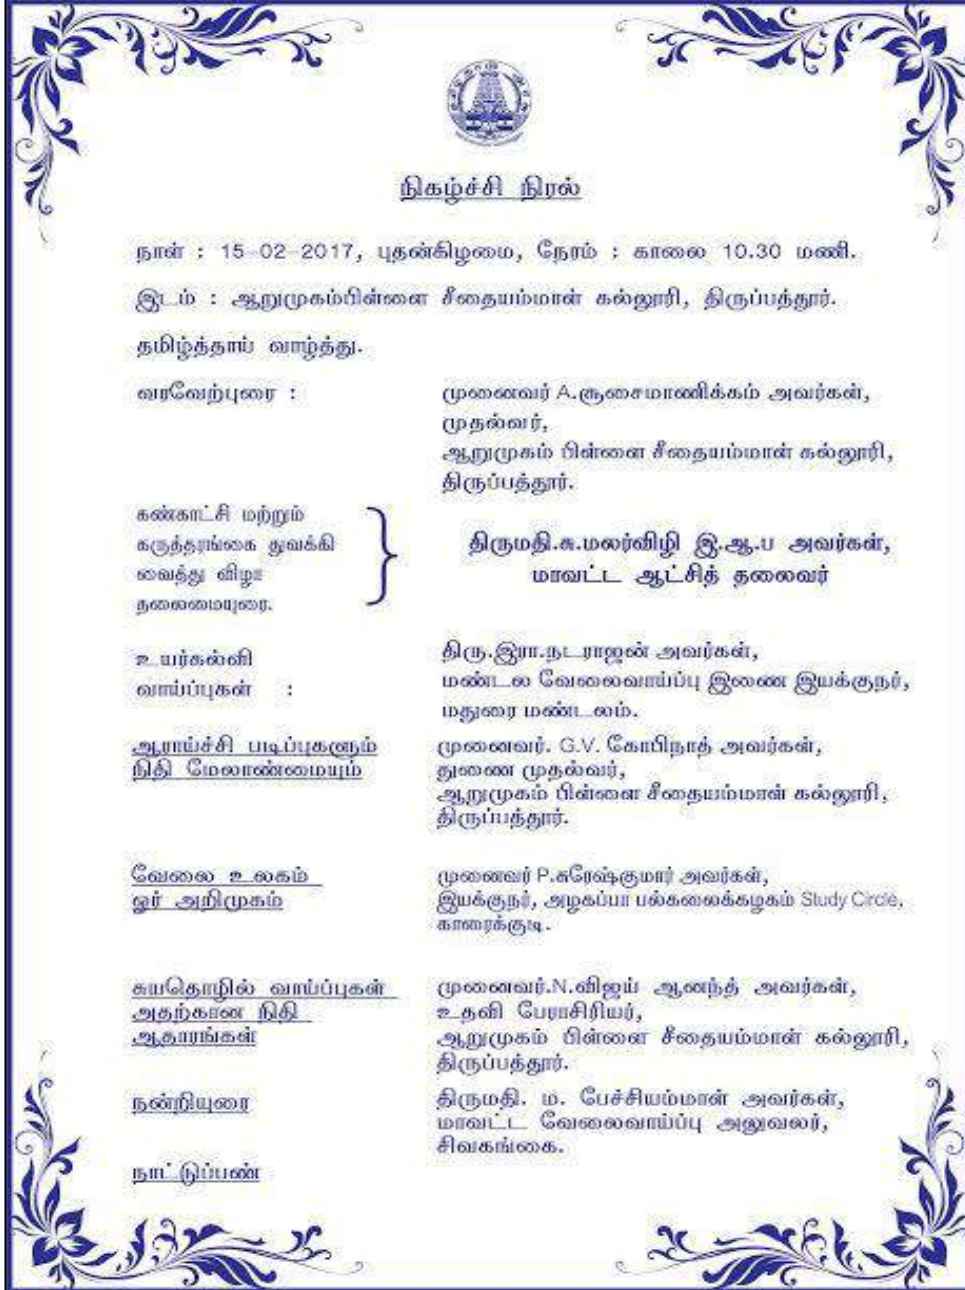 நிகழ்ச்சி நிரல்
நாள் : 15-02-2017, புதன்கிழமை, நேரம் : காலை 10.30 மணி.
இடம் : ஆறுமுகம்பிள்ளை சீதையம்மாள் கல்லூரி, திருப்பத்தூர்.
தமிழ்த்தாய் வாழ்த்து.
வரவேற்புரை :
முனைவர் A.சூசைமாணிக்கம் அவர்கள்,
முதல்வர்,
ஆறுமுகம் பிள்ளை சீதையம்மாள் கல்லூரி,
திருப்பத்தூர்.
கண்காட்சி மற்றும்
கருத்தரங்கை துவக்கி
வைத்து விழா
தலைமையுரை.
திருமதி.சு.மலர்விழி இ.ஆ.ப அவர்கள்,
மாவட்ட ஆட்சித் தலைவர்
உயர்கல்வி
வாய்ப்புகள் :
திரு.இரா.நடராஜன் அவர்கள்,
மண்டல வேலைவாய்ப்பு இணை இயக்குநர்,
மதுரை மண்டலம்.
ஆராய்ச்சி படிப்புகளும்
நிதி மேலாண்மையும்
முனைவர். G.V. கோபிநாத் அவர்கள்,
துணை முதல்வர்,
ஆறுமுகம் பிள்ளை சீதையம்மாள் கல்லூரி,
திருப்பத்தூர்.
வேலை உலகம்
ஓர் அறிமுகம்
முனைவர் P.சுரேஷ்குமார் அவர்கள்,
இயக்குநர், அழகப்பா பல்கலைக்கழகம் Study Circle,
காரைக்குடி.
சுயதொழில் வாய்ப்புகள்
அதற்கான நிதி
ஆதாரங்கள்
முனைவர்.N.விஜய் ஆனந்த் அவர்கள்,
உதவி பேராசிரியர்,
ஆறுமுகம் பிள்ளை சீதையம்மாள் கல்லூரி,
திருப்பத்தூர்.
நன்றியுரை
திருமதி. ம. பேச்சியம்மாள் அவர்கள்,
மாவட்ட வேலைவாய்ப்பு அலுவலர்,
சிவகங்கை.
நாட்டுப்பண்